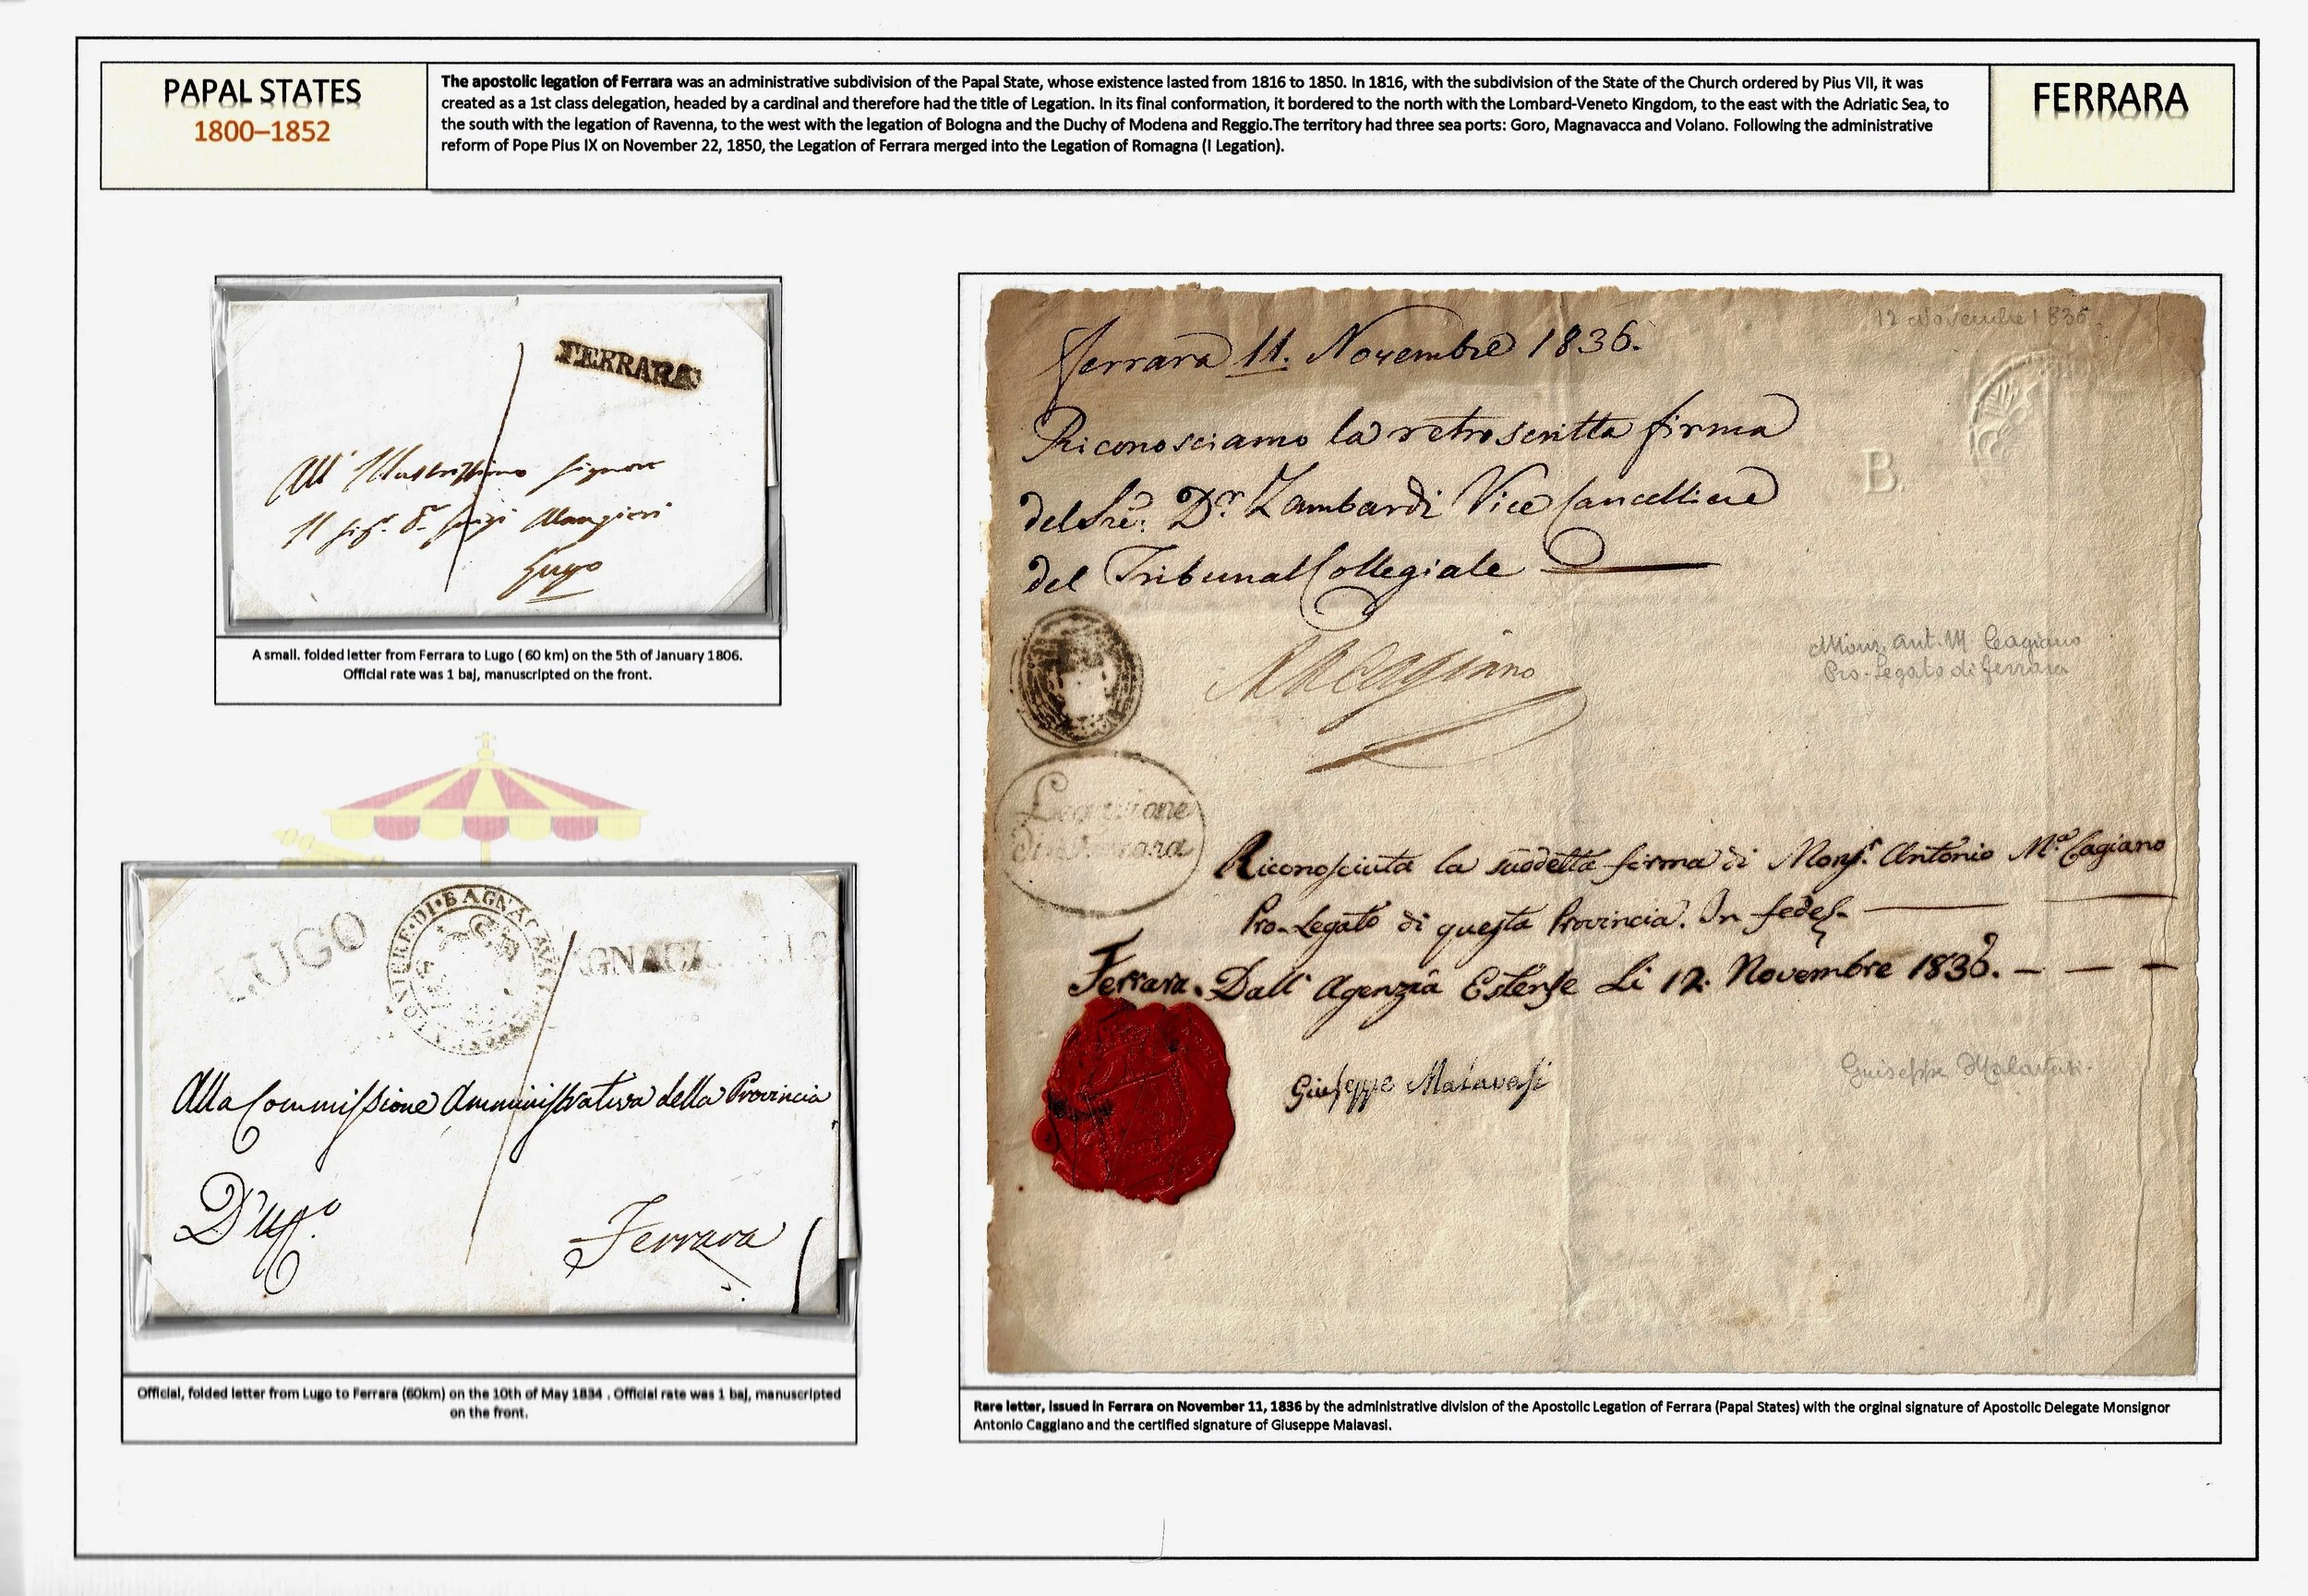 PAPAL STATES
1800–1852
The apostolic legation of Ferrara was an administrative subdivision of the Papal State, whose existence lasted from 1816 to 1850. In 1816, with the subdivision of the State of the Church ordered by Pius VII, it was
created as a 1st class delegation, headed by a cardinal and therefore had the title of Legation. In its final conformation, it bordered to the north with the Lombard-Veneto Kingdom, to the east with the Adriatic Sea, to
the south with the legation of Ravenna, to the west with the legation of Bologna and the Duchy of Modena and Reggio.The territory had three sea ports: Goro, Magnavacca and Volano. Following the administrative
reform of Pope Pius IX on November 22, 1850, the Legation of Ferrara merged into the Legation of Romagna (I Legation).
FERRARA
FERRARA
All' Illustrissimo Signore
Lugo
A small. folded letter from Ferrara to Lugo ( 60 km) on the 5th of January 1806.
Official rate was 1 baj, manuscripted on the front.
LUGO
DI BAGNACAV
Alla Commissione Amministrativa della Provincia
D'uff.o
Ferrara
Official, folded letter from Lugo to Ferrara (60km) on the 10th of May 1834 . Official rate was 1 baj, manuscripted
on the front.
12 Novembre 1836.
Ferrara 11. Novembre 1836.
Riconosciamo la retroscritta firma
B.
del Sre: Dr. Zambardi Vice Cancelliere
del Tribunal Collegiale
Monz. Ant. M Cagiano
Pro-Legato di ferrara
Legazione
di Ferrara
Riconosciuta la suddetta firma di Monsr. Antonio Ma. Cagiano
Pro-Legato di questa Provincia. In fede
Ferrara. Dall' Agenzia Estense Li 12. Novembre 1836. — — —
Giuseppe Malavasi
Rare letter, issued in Ferrara on November 11, 1836 by the administrative division of the Apostolic Legation of Ferrara (Papal States) with the orginal signature of Apostolic Delegate Monsignor
Antonio Caggiano and the certified signature of Giuseppe Malavasi.